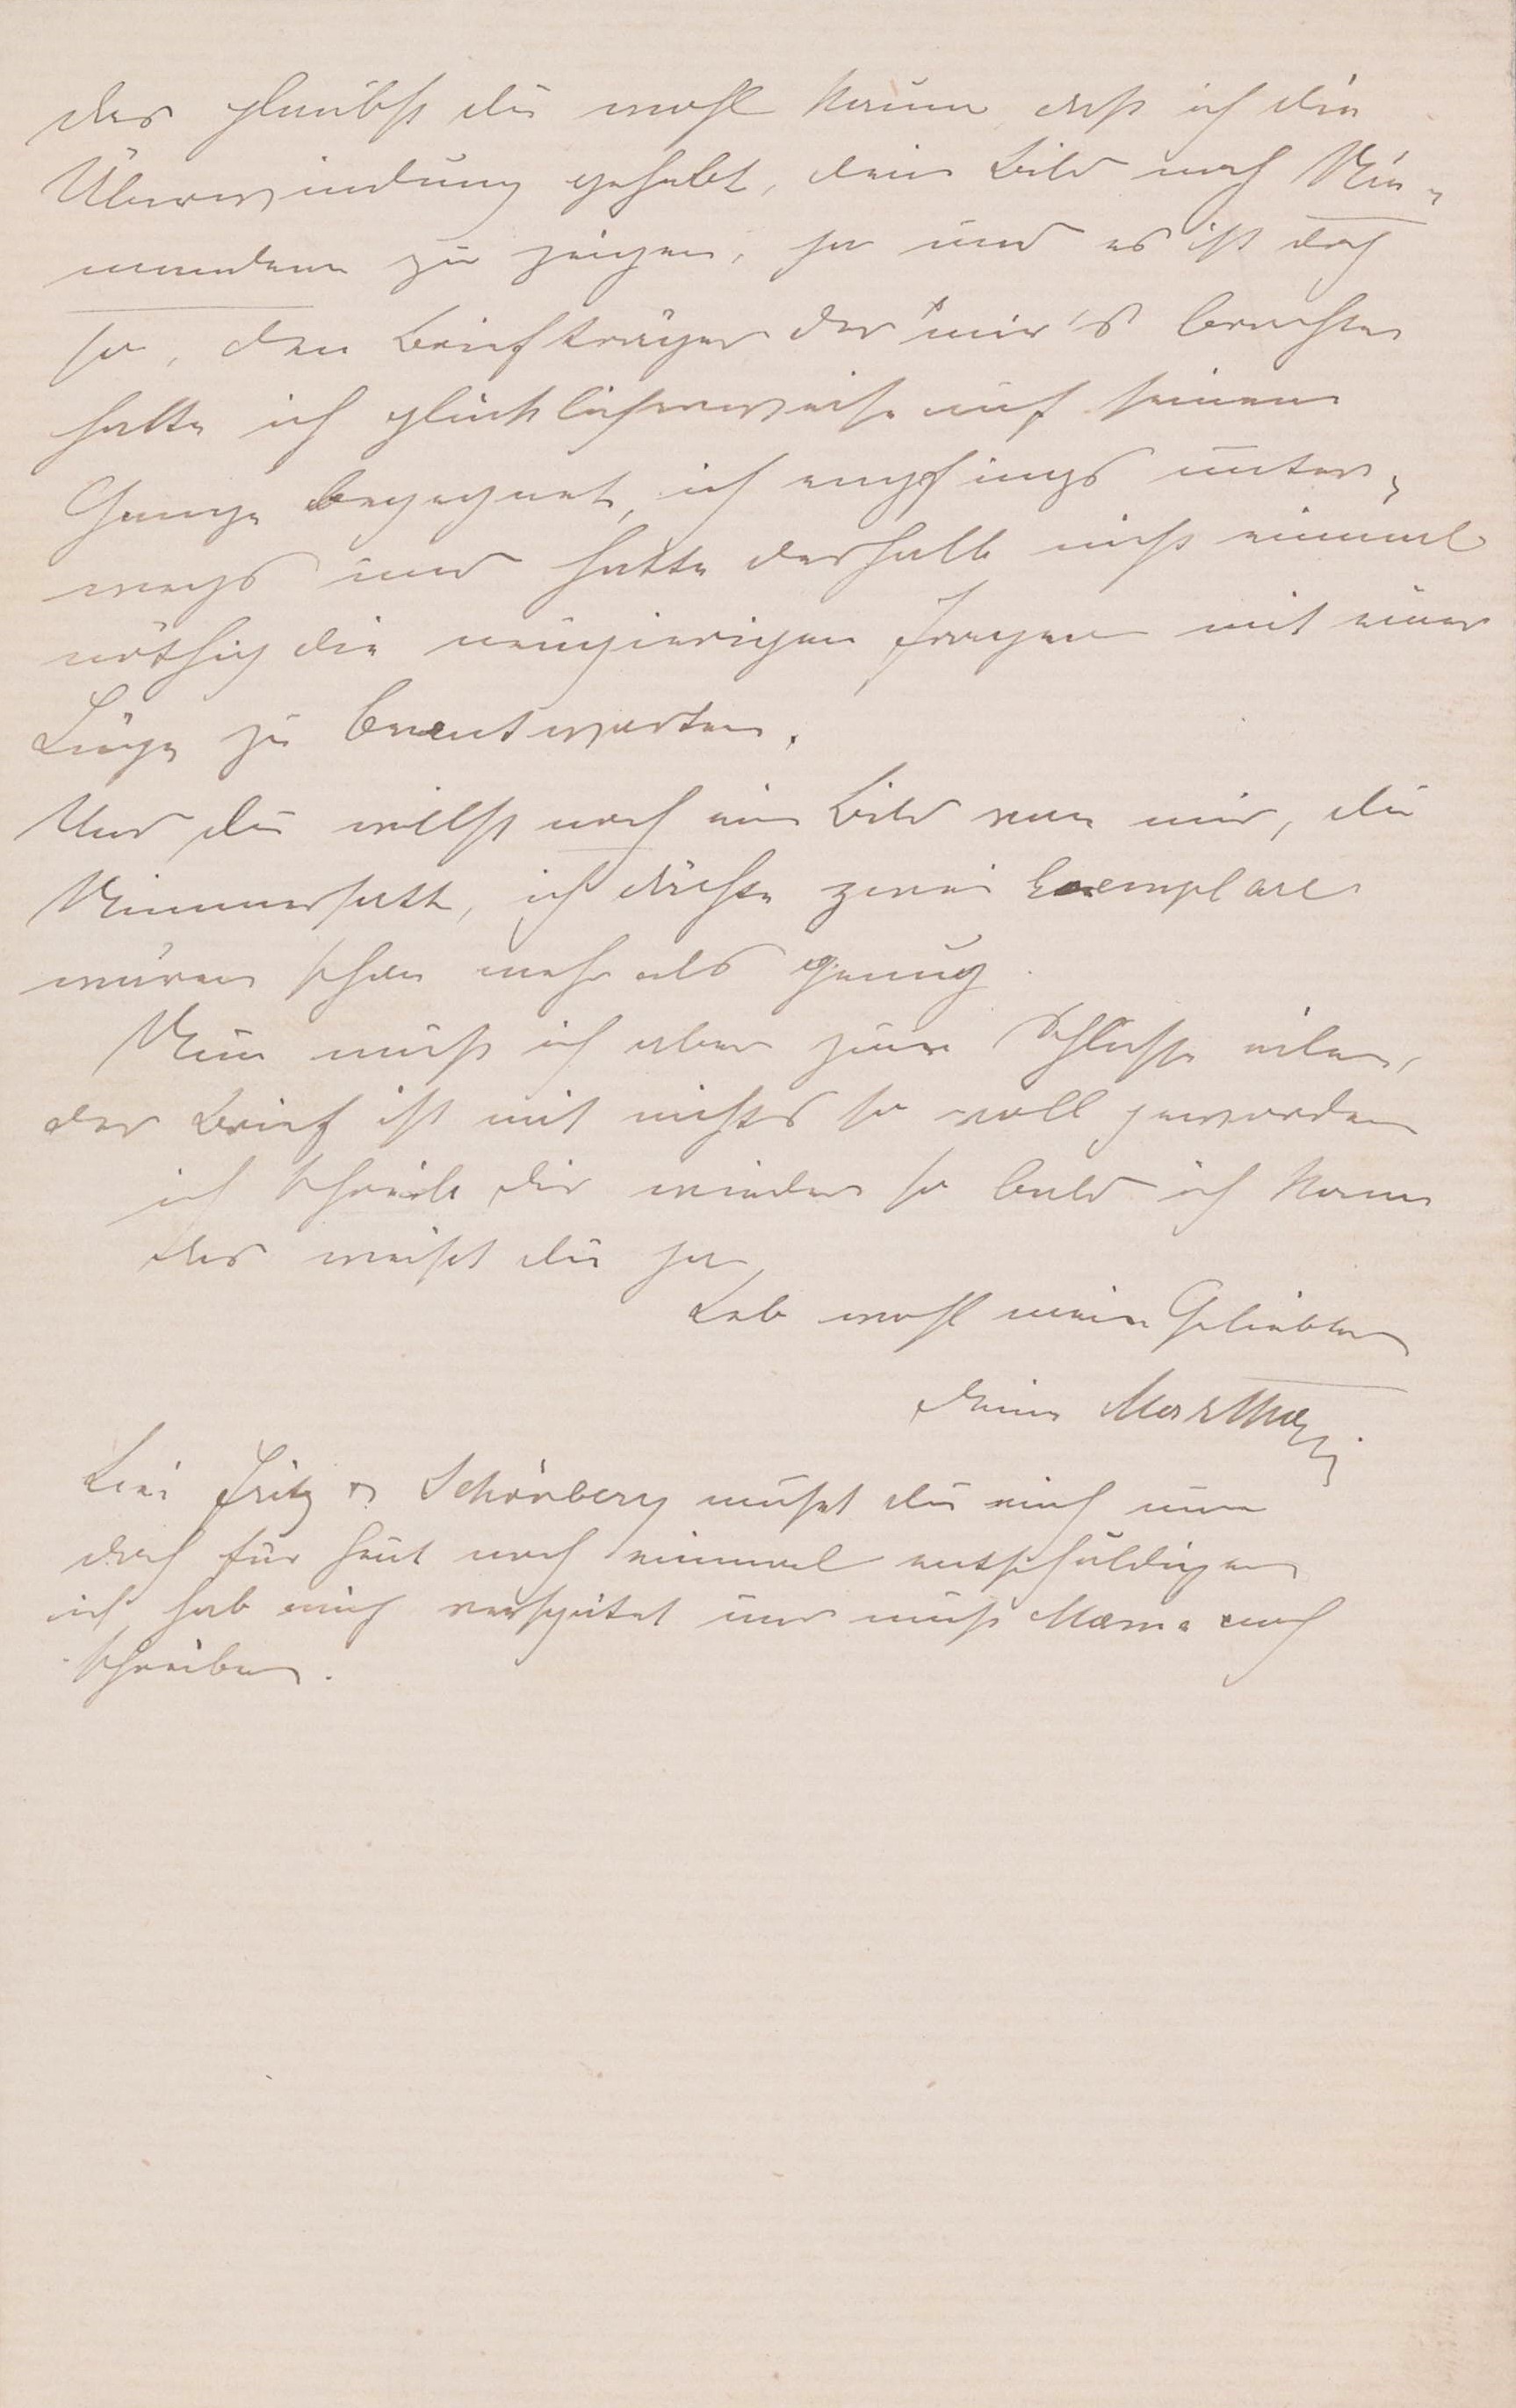 das glaubst du wohl kaum daß ich die
Überwindung gehabt, dein Bild noch Nie-
mandem zu zeigen, ja und es ist doch
so, den Briefträger der mir's brachte
hatte ich glücklicherweise auf seinem
Gange begegnet, ich empfings unter-
wegs und hatte deshalb nicht einmal
nöthig die neugierigen Fragen mit einer
Lüge zu beantworten.
Und du willst noch ein Bild von mir, du
Nimmersatt, ich dächte zwei Exemplare
wären schon mehr als genug.
Nun muß ich aber zum Schluße eilen,
der Brief ist mit nichts so voll geworden
ich schreib dir wieder so bald ich kann
das weißt du ja
Leb wohl mein Geliebter
deine Martha
Bei Fritz & Schönberg mußt du mich nun
doch für heut noch einmal entschuldigen
ich hab mich verspätet und muß Mama noch
schreiben.